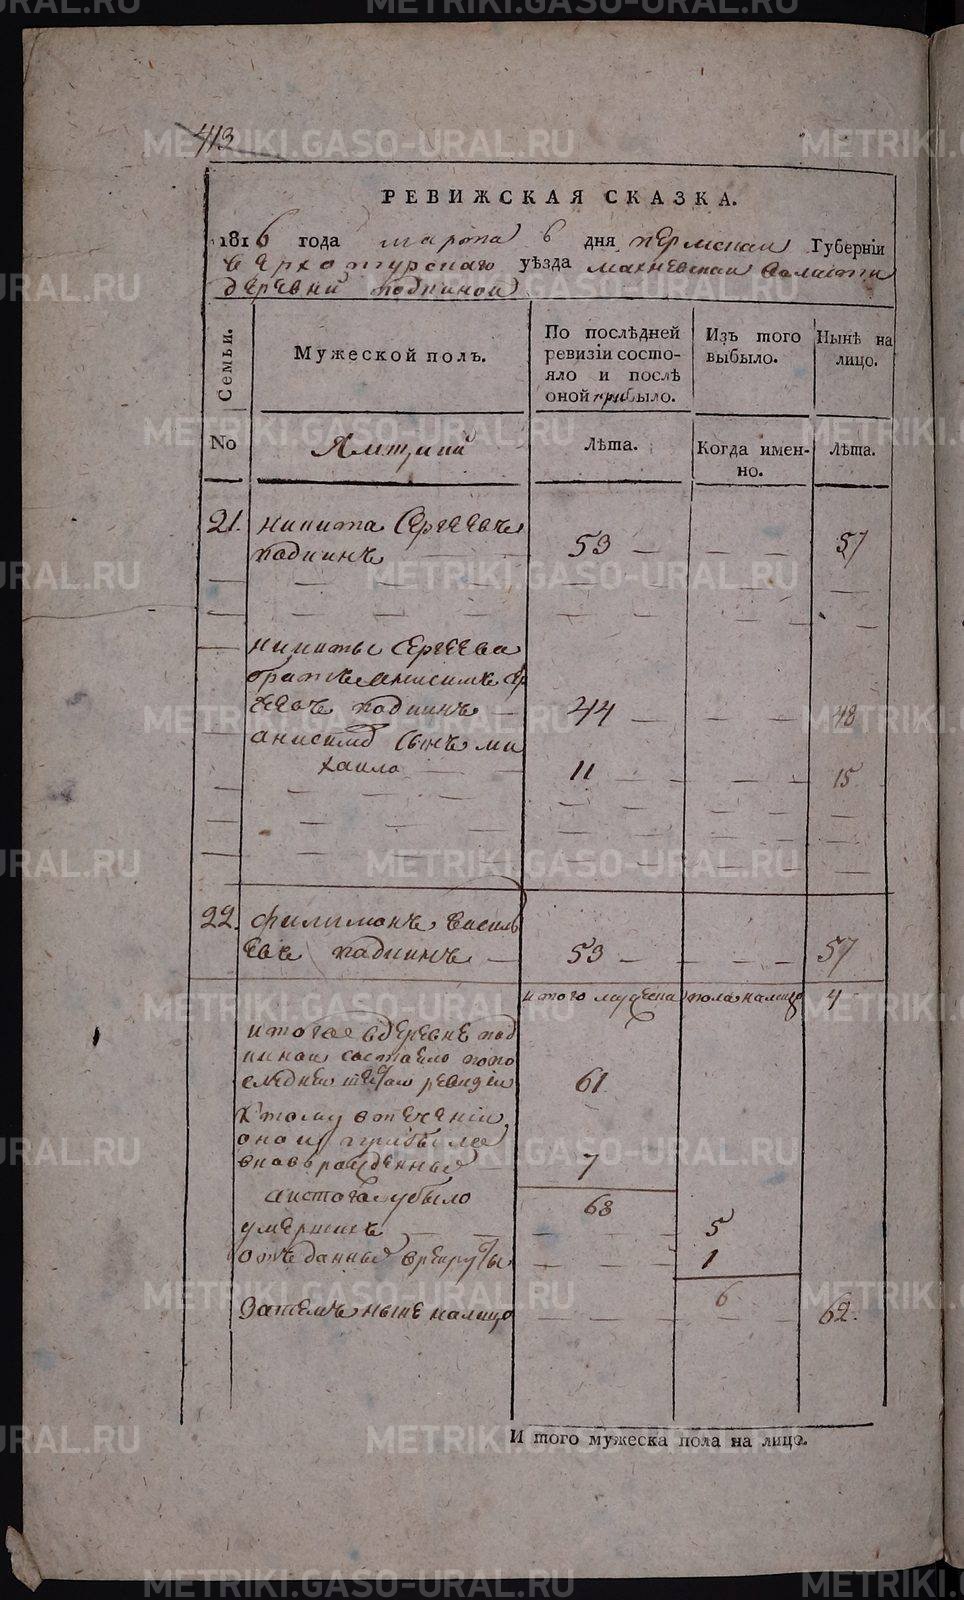 413
РЕВИЖСКАЯ СКАЗКА.
1816 года марта 6 дня пермской Губерніи
верхотурскаго уѣзда махневской валости
деревни подкиной
Семьи. Мужеской полъ. По послѣдней ревизіи состо- яло и послѣ оной прибыло. Изъ того выбыло. Нынѣ на лицо.
No Лѣта. Когда имен- но. Лѣта.
21. никита Сергеевъ
подкинъ 53 57
никиты Сергеева
братъ анисимъ Сер
геевъ подкинъ 44 48
анисима сынъ ми
хаило 11 15
22. филимонъ василь
евъ подкинъ 53 57
итого мужеска пола налицо 4
итого в деревне под
киной состояло по по
следней ревизіи 61
к тому в течении
оной прибыло
вновь рожденные 7
68
а истого убыло
умершихъ 5
отъданные в рекруты 1
6
Затемъ ныне налицо 62
И того мужеска пола на лицо.
METRIKI.GASO-URAL.RU